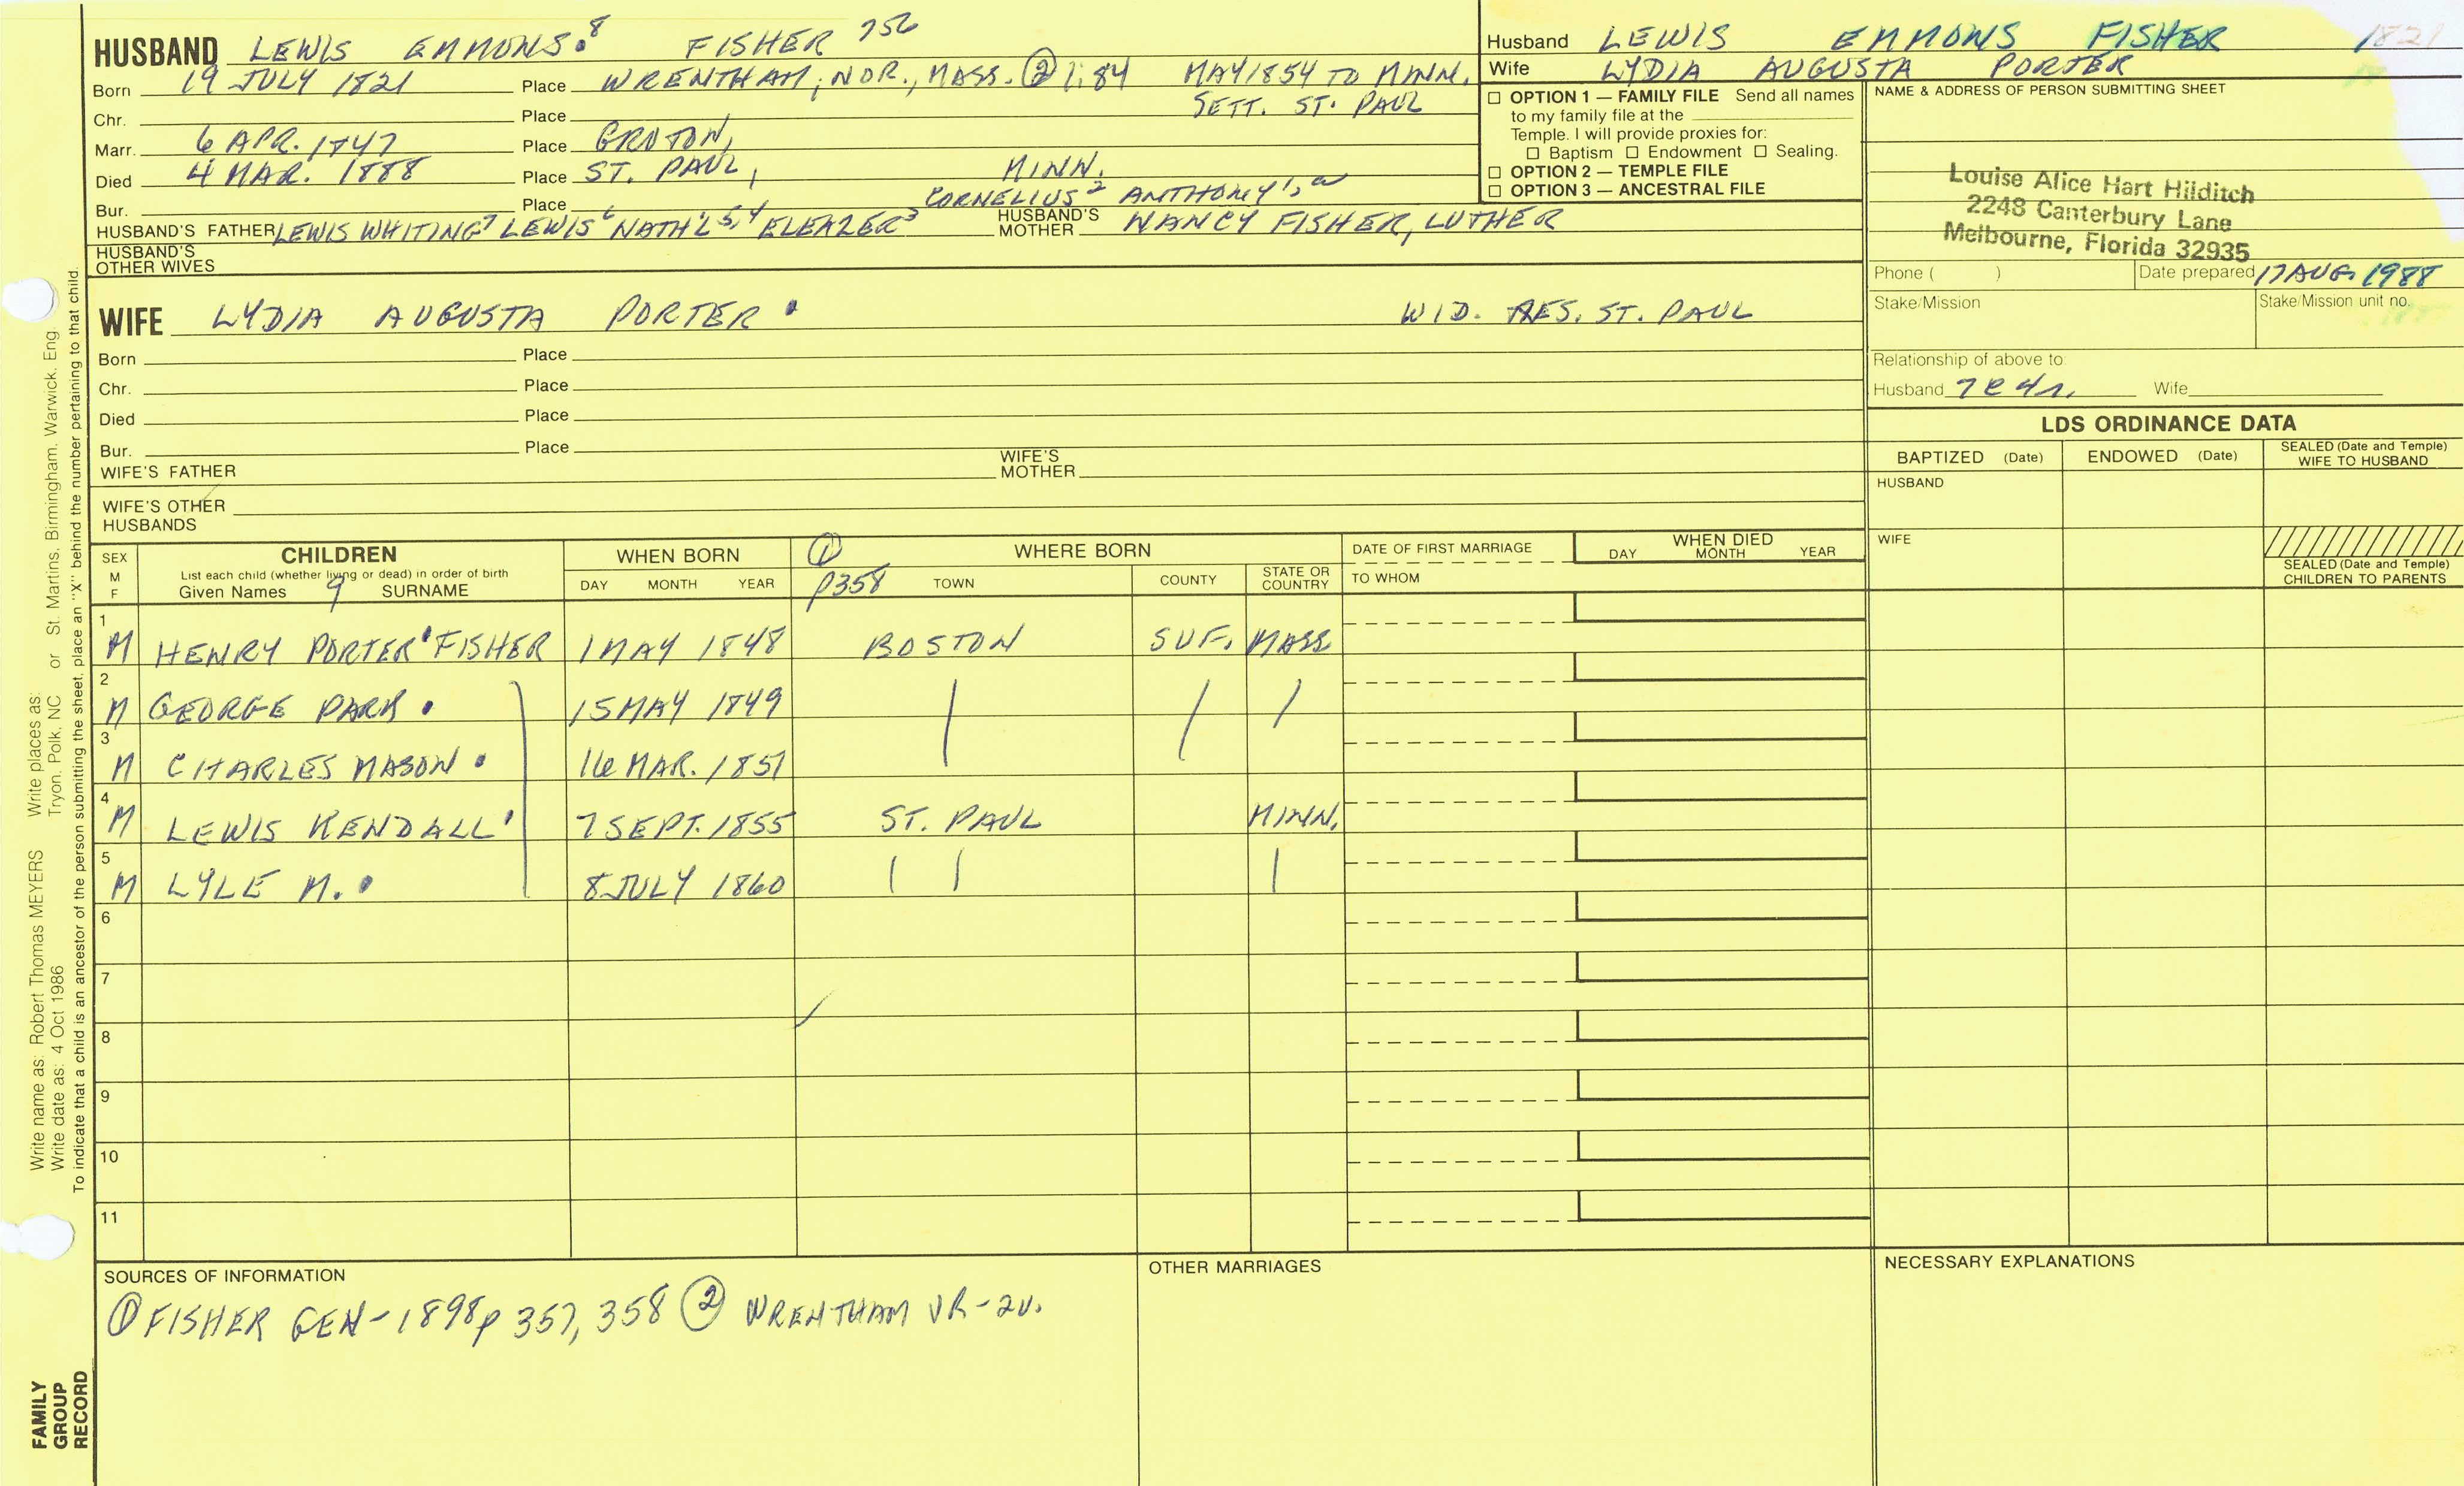 HUSBAND LEWIS EMMONS.8 FISHER 756
Born 19 JULY 1821 Place WRENTHAM, NOR., MASS. ② 1:84 MAY 1854 TO MINN.
SETT. ST. PAUL
Chr. Place
Marr. 6 APR. 1847 Place GROTON,
Died 4 MAR. 1888 Place ST. PAUL, MINN.
Bur. Place CORNELIUS2 ANTHONY1,
HUSBAND'S FATHER LEWIS WHITING7 LEWIS6 NATH'L5,4 ELEAZER3 HUSBAND'S MOTHER NANCY FISHER, LUTHER
HUSBAND'S OTHER WIVES
Husband LEWIS EMMONS FISHER 1821
Wife LYDIA AUGUSTA PORTER
☐ OPTION 1 — FAMILY FILE Send all names
to my family file at the
Temple. I will provide proxies for:
☐ Baptism ☐ Endowment ☐ Sealing.
☐ OPTION 2 — TEMPLE FILE
☐ OPTION 3 — ANCESTRAL FILE
NAME & ADDRESS OF PERSON SUBMITTING SHEET
Louise Alice Hart Hilditch
2248 Canterbury Lane
Melbourne, Florida 32935
Phone ( ) Date prepared 17 AUG. 1988
Stake/Mission Stake/Mission unit no.
Relationship of above to:
Husband 7C4r. Wife
WIFE LYDIA AUGUSTA PORTER. WID. RES. ST. PAUL
Born Place
Chr. Place
Died Place
Bur. Place
WIFE'S FATHER WIFE'S MOTHER
WIFE'S OTHER HUSBANDS
LDS ORDINANCE DATA
BAPTIZED (Date) ENDOWED (Date) SEALED (Date and Temple) WIFE TO HUSBAND
HUSBAND
WIFE
SEALED (Date and Temple) CHILDREN TO PARENTS
SEX M F CHILDREN WHEN BORN ① WHERE BORN DATE OF FIRST MARRIAGE WHEN DIED
List each child (whether living or dead) in order of birth
Given Names 9 SURNAME DAY MONTH YEAR p358 TOWN COUNTY STATE OR COUNTRY TO WHOM DAY MONTH YEAR
1 M HENRY PORTER' FISHER 1 MAY 1848 BOSTON SUF. MASS
2 M GEORGE PARK. 15 MAY 1849 | / /
3 M CHARLES MASON. 16 MAR. 1851
4 M LEWIS KENDALL' 7 SEPT. 1855 ST. PAUL MINN.
5 M LYLE M.. 8 JULY 1860 | | |
6
7
8
9
10
11
SOURCES OF INFORMATION
① FISHER GEN-1898 p 357, 358 ② WRENTHAM VR-2V.
OTHER MARRIAGES
NECESSARY EXPLANATIONS
Write name as: Robert Thomas MEYERS Write places as: Tryon, Polk, NC or St. Martins, Birmingham, Warwick, Eng
Write date as: 4 Oct 1986
To indicate that a child is an ancestor of the person submitting the sheet, place an "X" behind the number pertaining to that child.
FAMILY
GROUP
RECORD